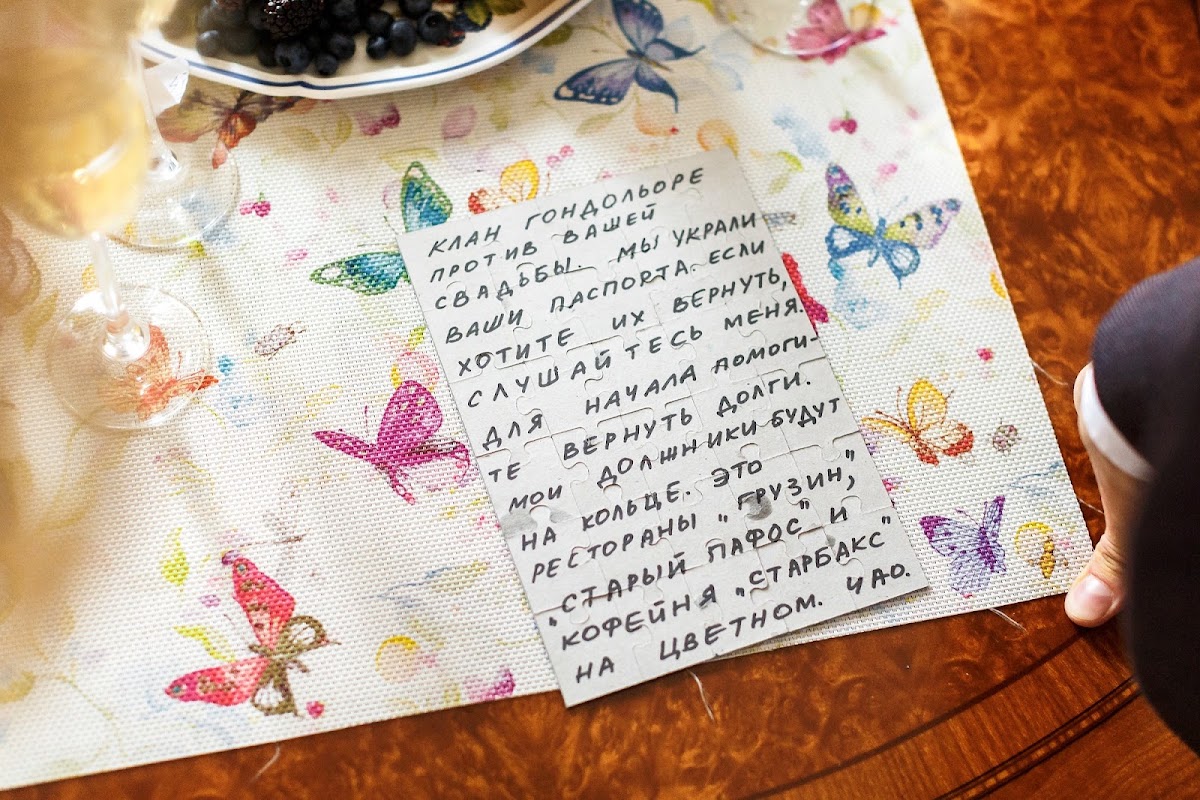 КЛАН ГОНДОЛЬОРЕ
ПРОТИВ ВАШЕЙ
СВАДЬБЫ. МЫ УКРАЛИ
ВАШИ ПАСПОРТА. ЕСЛИ
ХОТИТЕ ИХ ВЕРНУТЬ,
СЛУШАЙТЕСЬ МЕНЯ.
ДЛЯ НАЧАЛА ПОМОГИ-
ТЕ ВЕРНУТЬ ДОЛГИ.
МОИ ДОЛЖНИКИ БУДУТ
НА КОЛЬЦЕ. ЭТО
РЕСТОРАНЫ "ГРУЗИН",
"СТАРЫЙ ПАФОС" И
КОФЕЙНЯ "СТАРБАКС"
НА ЦВЕТНОМ. ЧАО.